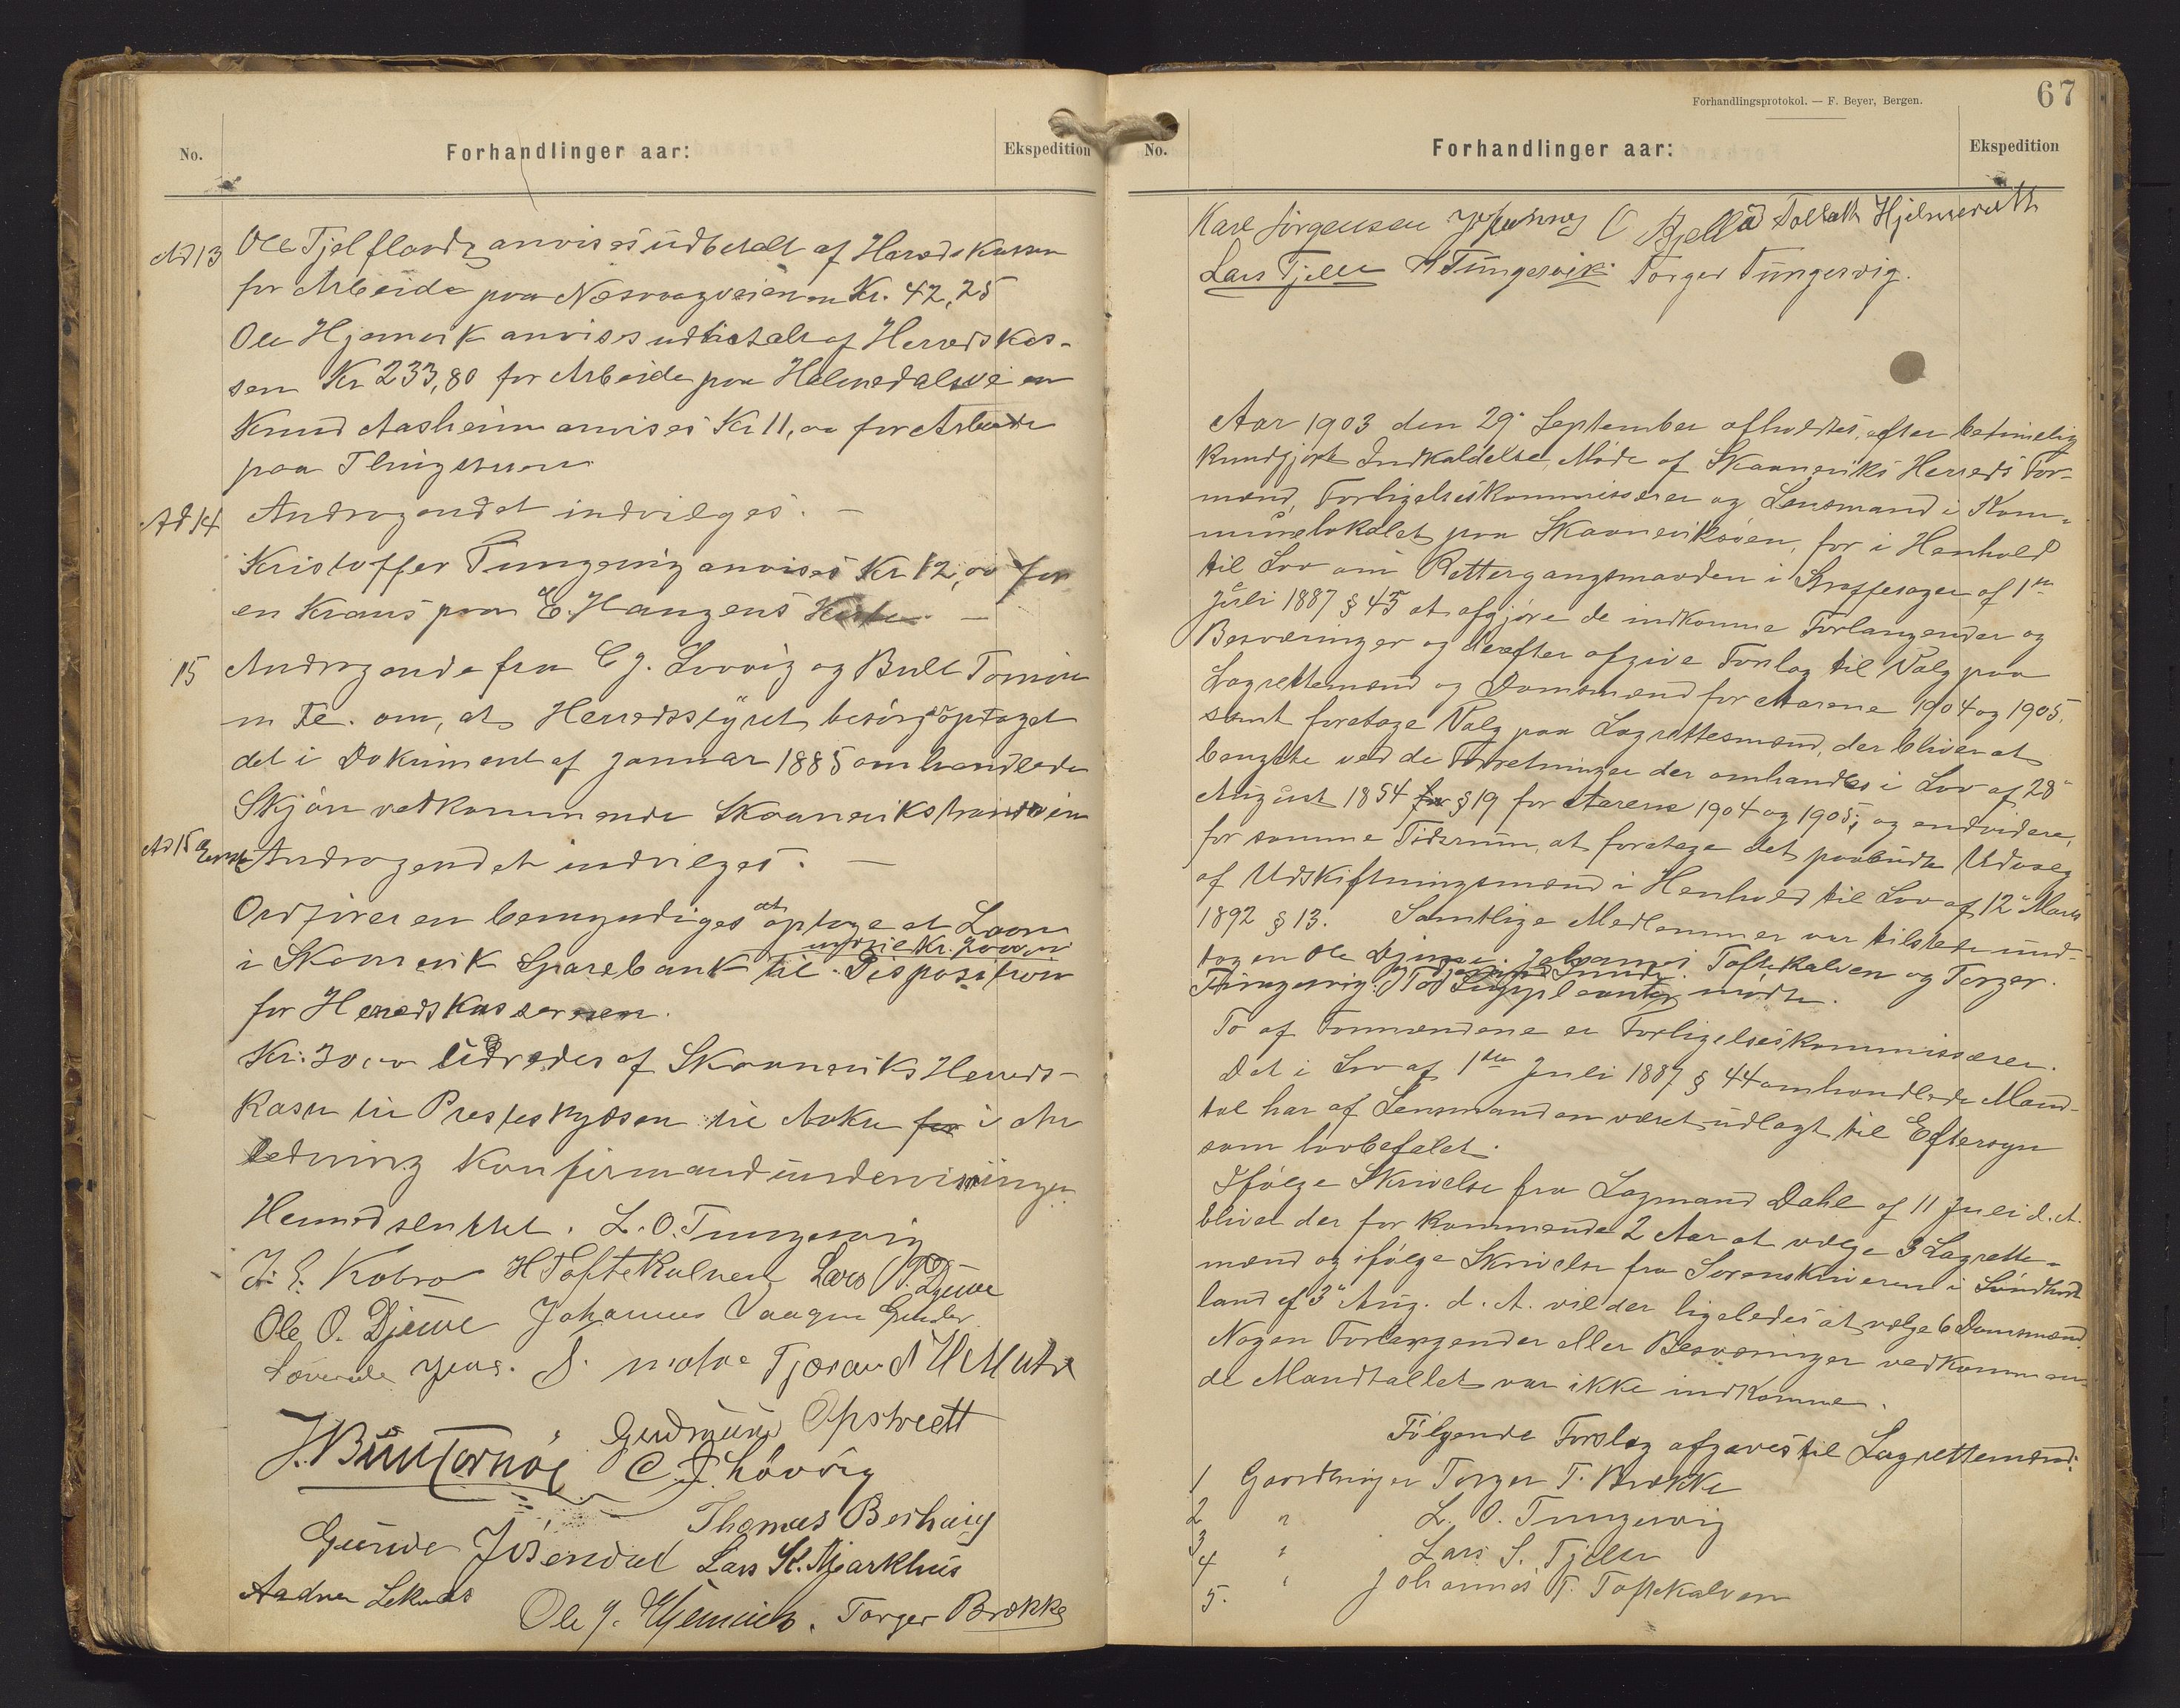 No.
Forhandlinger aar:
Ekspedition
Ad 13 Ole Tjelflaadt anvises udbetalt af Heredskassen
for Arbeide paa Nesvaagveien Kr. 42,25
Ole Hjemvik anvises udbetalt af Heredskas-
sen Kr 233,80 for Arbeide paa Holmedalsveien
Knud Aasheim anvises Kr 11,00 for Arbeide
paa
Ad 14 Andragendet indvilges. —
Kristoffer Tungesvig anvises Kr 12,00 for
en Krans paa E. Haugens Kiste —
15 Andragende fra C J. Løvvig og Bull Tornøe
m Fl. om, at Herredsstyret besørg optaget
det i Dokument af Januar 1885 omhandlede
Skjøn vedkommende Skaaneviksstrandveien
Ad 15 Andragendet indvilges. —
Ordføreren bemyndiges at optage et Laan
indtil Kr. 2000,00
i Skaanevik Sparebank til Disposition
for Heredskassereren.
Kr. 30,00 udredes af Skaaneviks Herreds-
kasse til Presteskydsen til Aakre for i An
ledning Konfirmandundervisningen
Hermed sluttet. L. O. Tungesvig
J. E. Kobro H Toftekalven Lars N. Djuve
Ole O. Djuve Johannes Vaagen
Jens. J. Matre Tjeran H Matre
Gudmund Opstveitt
J. Bull Tornøe C J Løvvig
Thomas Berhaug
Gunde Isendal Lars K. Mjærkhus
Aadne Leknes
Ole J. Hjemvik. Torger Brække
Forhandlingsprotokol. — F. Beyer, Bergen.
67
No.
Forhandlinger aar:
Ekspedition
Karl Jørgensen Johannes O Fjellø Tollak Hjelmevolth
Lars Tjelle H Tungesvik Torger Tungesvig.
Aar 1903 den 29de September afholdtes, efter betimelig
kundgjort Indkaldelse, Møde af Skaaneviks Herreds For-
mænd, Forligelseskommissærer og Lensmand i Kom-
munelokalet paa Skaaneviksøen, for i Henhold
til Lov om Rettergangsmaaden i Straffesager af 1ste
Juli 1887 § 45 at afgjøre de indkomne Forlangender og
Besværinger og derefter afgive Forslag til Valg paa
Lagrettemænd og Domsmænd for Aarene 1904 og 1905.
samt foretage Valg paa Lagrettesmænd, der bliver at
benytte ved de Forretninger der omhandles i Lov af 28de
August 1854 for § 19 for Aarene 1904 og 1905; og endvidere,
for samme Tidsrum, at foretage det paabudte Udvalg
af Udskiftningsmænd i Henhold til Lov af 12te Marts
1892 § 13. Samtlige Medlemmer var tilstede und-
tagen Ole Djuve. Johannes Toftekalven og Torger
Tungesvig. Suppleanter mødte.
To af Formændene er Forligelseskommissærer.
Det i Lov af 1ste Juli 1887 § 44 omhandlede Mand-
tal har af Lensmanden været udlagt til Eftersyn
som lovbefalet.
Ifølge Skrivelse fra Lagmand Dahl af 11 Juli d. A.
blived der for kommende 2 Aar at vælge 3 Lagrette-
mænd og ifølge Skrivelse fra Sorenskriveren i Søndhord
land af 3de Aug. d. A. vil der ligeledes at vælge 6 Domsmænd.
Nogen Forlangender eller Besværinger vedkommen-
de Mandtallet var ikke indkomne.
Følgende Forslag afgaves til Lagrettemænd:
1 Gaardbruger Torger T. Brække
2 " L. O. Tungesvig
3 " Lars S. Tjelle
4 " Johannes T. Toftekalven
5.